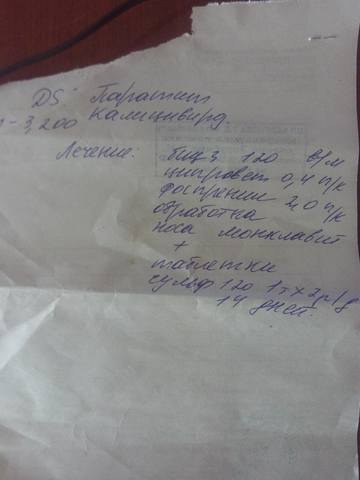 DS: Паратит
- 3,200 Калицивирд.
Лечение: биц 3 120 в/м
ципровет 0,4 п/к
фоспренил 2,0 п/к
обработка
носа монклавит
+
таблетки
сульф 120 1т х 2р/д
14 дней.